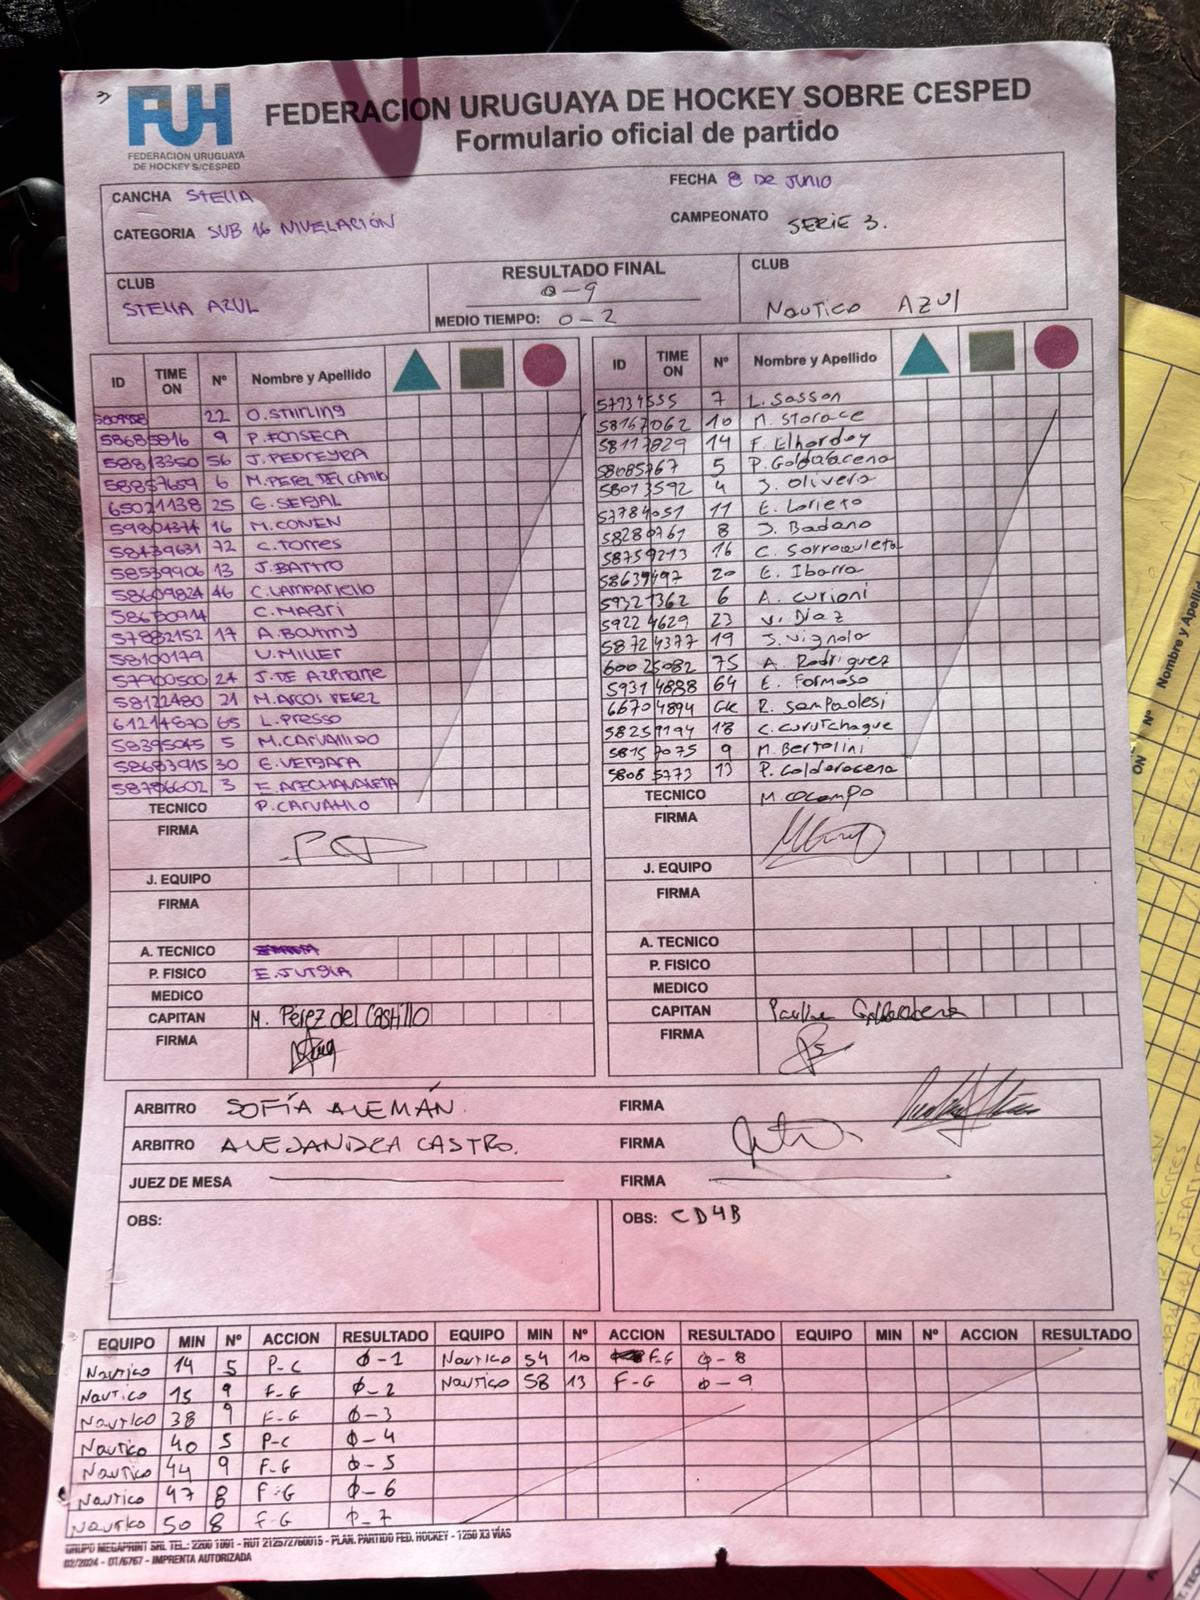 3
FUH
FEDERACION URUGUAYA
DE HOCKEY S/CESPED
FEDERACION URUGUAYA DE HOCKEY SOBRE CESPED
Formulario oficial de partido
CANCHA STELLA
FECHA 8 DE JUNIO
CATEGORIA SUB 16 NIVELACIÓN
CAMPEONATO SERIE 3.
CLUB
STELLA AZUL
RESULTADO FINAL
0-9
MEDIO TIEMPO: 0-2
CLUB
Nautico AZUl
ID TIME ON Nº Nombre y Apellido
22 O. STIRLING
58685816 9 P. FONSECA
58813350 56 J. PEDREYRA
58857659 6 M. PEREZ DEL CASTILLO
65021138 25 E. SEIJAL
59804374 16 M. CONEN
58439631 72 C. TORRES
58539906 13 J. BATTRO
58609824 46 C. LAMPARIELLO
C. MAGRI
57882152 17 A. BOUTMY
58100179 V. MILLER
57900500 24 J. DE AZPITARTE
58122480 21 M. ARCOS PEREZ
61214870 65 L. PRESSO
58395045 5 M. CARVALLIDO
58683915 30 E. VERGARA
58786602 3 E. ARECHAVALETA
TECNICO P. CARVALLO
FIRMA
J. EQUIPO
FIRMA
A. TECNICO
P. FISICO E. JUTGLA
MEDICO
CAPITAN M. Pérez del Castillo
FIRMA
ID TIME ON Nº Nombre y Apellido
57734555 7 L. Sasson
58167062 10 M. Storace
58117829 14 F. Elhordoy
58085767 5 P. Goldaracena
58073592 4 J. Olivera
57784051 11 E. Lorieto
58280761 8 J. Badano
58759213 16 C. Sorroqueta
58639497 20 E. Ibarra
59321362 6 A. Curioni
59224629 23 V. Diaz
58724377 19 J. Vignola
60025082 75 A. Rodriguez
59314888 64 E. Formoso
66704894 GK R. Sampaolesi
58259194 18 C. Curutchague
58157075 9 M. Bertolini
58085773 13 P. Goldaracena
TECNICO M. Ocampo
FIRMA
J. EQUIPO
FIRMA
A. TECNICO
P. FISICO
MEDICO
CAPITAN Paulina Goldaracena
FIRMA
ARBITRO SOFÍA ALEMÁN. FIRMA
ARBITRO ALEJANDRA CASTRO. FIRMA
JUEZ DE MESA FIRMA
OBS:
OBS: CD4B
EQUIPO MIN Nº ACCION RESULTADO EQUIPO MIN Nº ACCION RESULTADO EQUIPO MIN Nº ACCION RESULTADO
Nautico 14 5 P-C 0-1 Nautico 54 10 F-G 0-8
Nautico 15 9 F-G 0-2 Nautico 58 13 F-G 0-9
Nautico 38 9 F-G 0-3
Nautico 40 5 P-C 0-4
Nautico 44 9 F-G 0-5
Nautico 47 8 F-G 0-6
Nautico 50 8 F-G 0-7
GRUPO MEGAPRINT SRL TEL.: 2200 1091 - RUT 212572760015 - PLAN. PARTIDO FED. HOCKEY - 1250 X3 VÍAS
02/2024 - OT/6767 - IMPRENTA AUTORIZADA
Nº Nombre y Apellido
ON